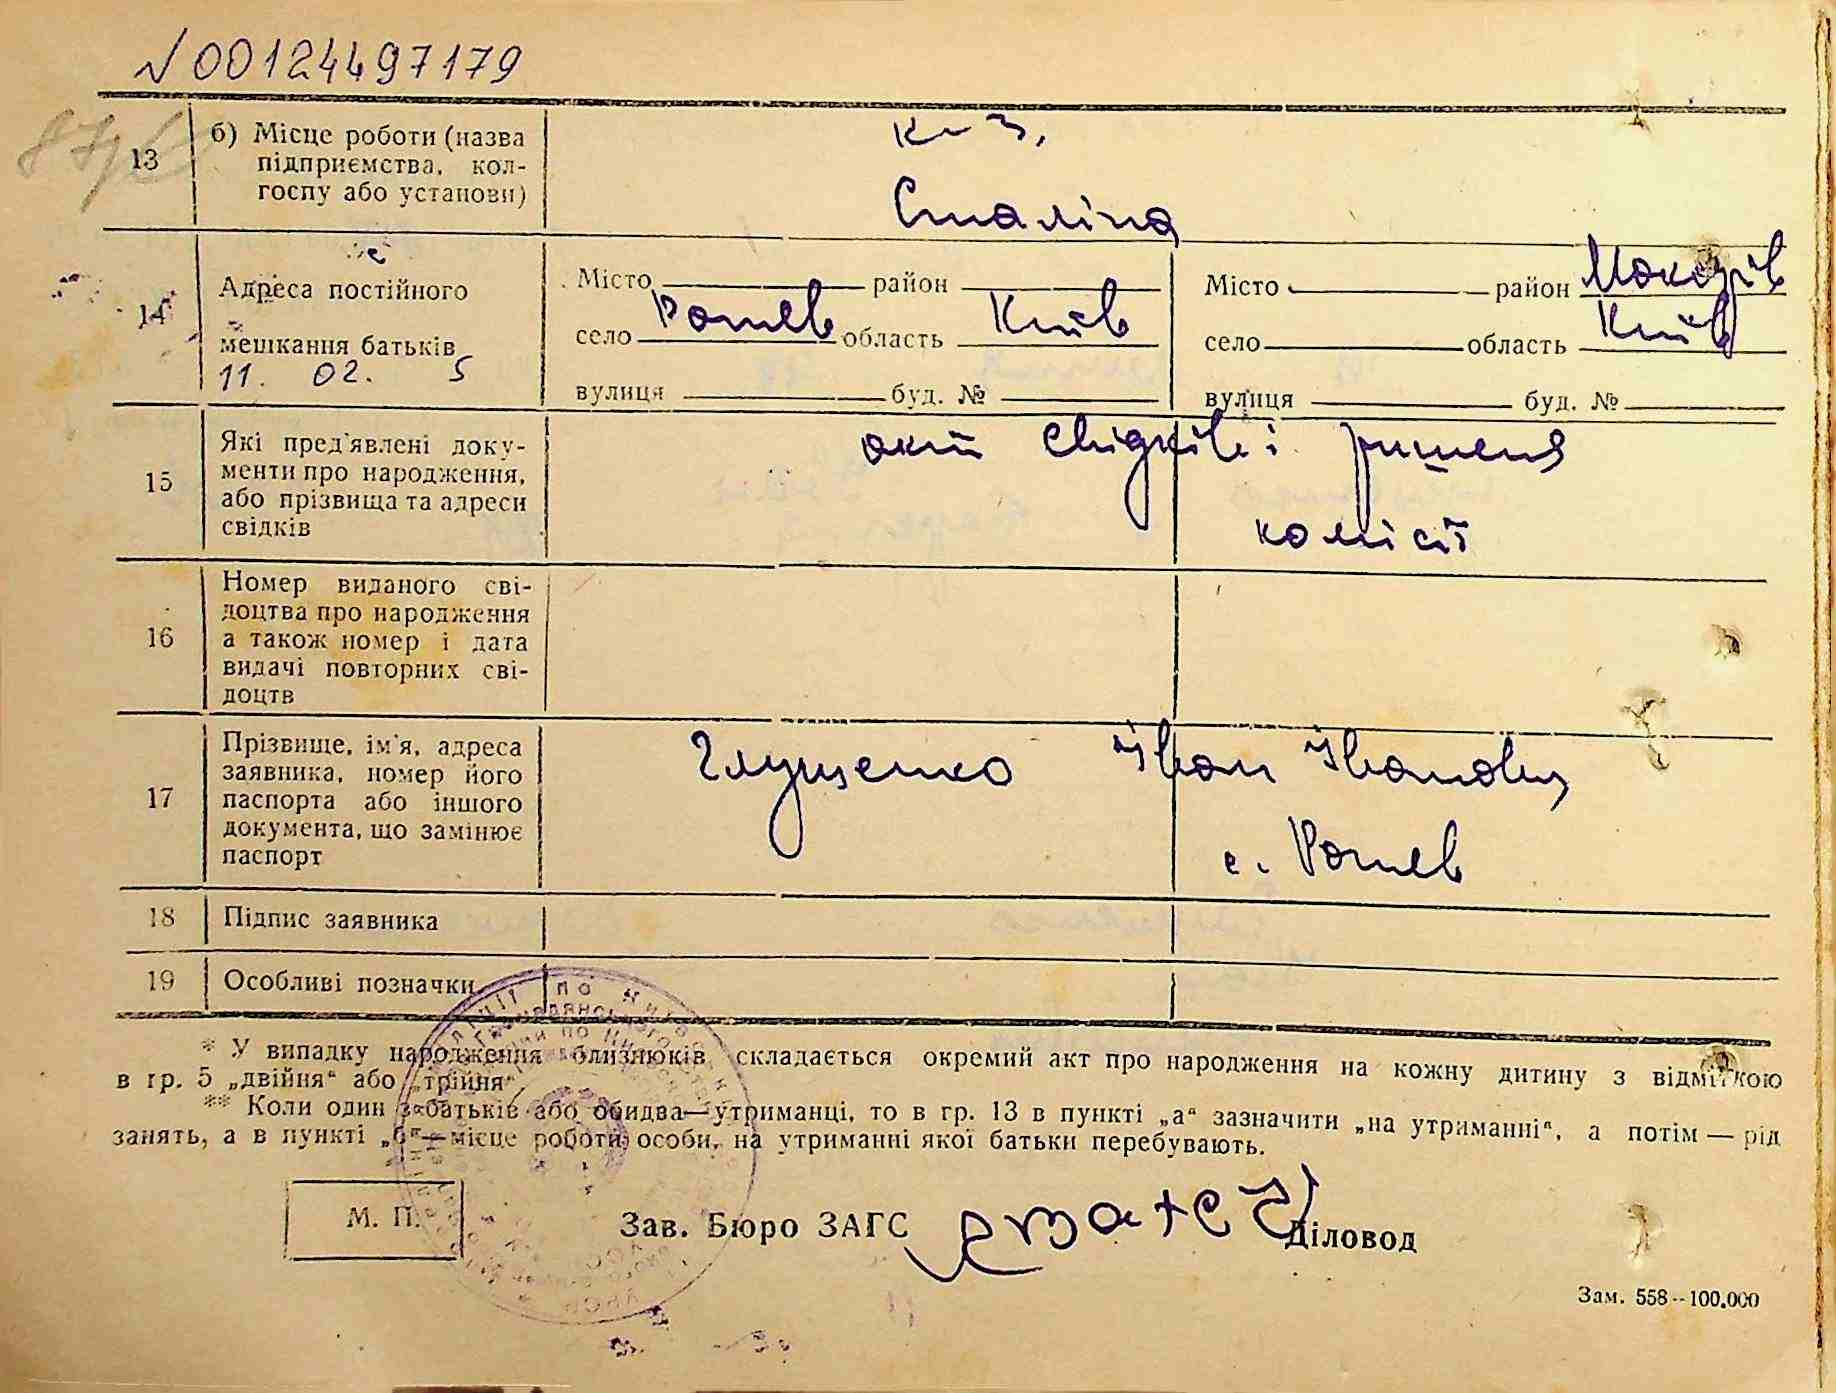 №00124497179
13 б) Місце роботи (назва
підприємства, кол-
госпу або установи)
к-з.
Сталіна
14 Адреса постійного
мешкання батьків
11. 02. 5
Місто район
село Рожев область Київ
вулиця буд. №
Місто район Макарів
село область Київ
вулиця буд. №
15 Які пред'явлені доку-
менти про народження,
або прізвища та адреси
свідків
акт свідків і рішення
комісії
16 Номер виданого сві-
доцтва про народження
а також номер і дата
видачі повторних сві-
доцтв
17 Прізвище, ім'я, адреса
заявника, номер його
паспорта або іншого
документа, що замінює
паспорт
Глущенко Іван Іванович
с. Рожев
18 Підпис заявника
19 Особливі позначки
* У випадку народження близнюків складається окремий акт про народження на кожну дитину з відміткою
в гр. 5 „двійня“ або „трійня“.
** Коли один з батьків або обидва—утриманці, то в гр. 13 в пункті „а“ зазначити „на утриманні“, а потім — рід
занять, а в пункті „б“—місце роботи особи, на утриманні якої батьки перебувають.
М. П.
Зав. Бюро ЗАГС
Діловод
Зам. 558--100.000